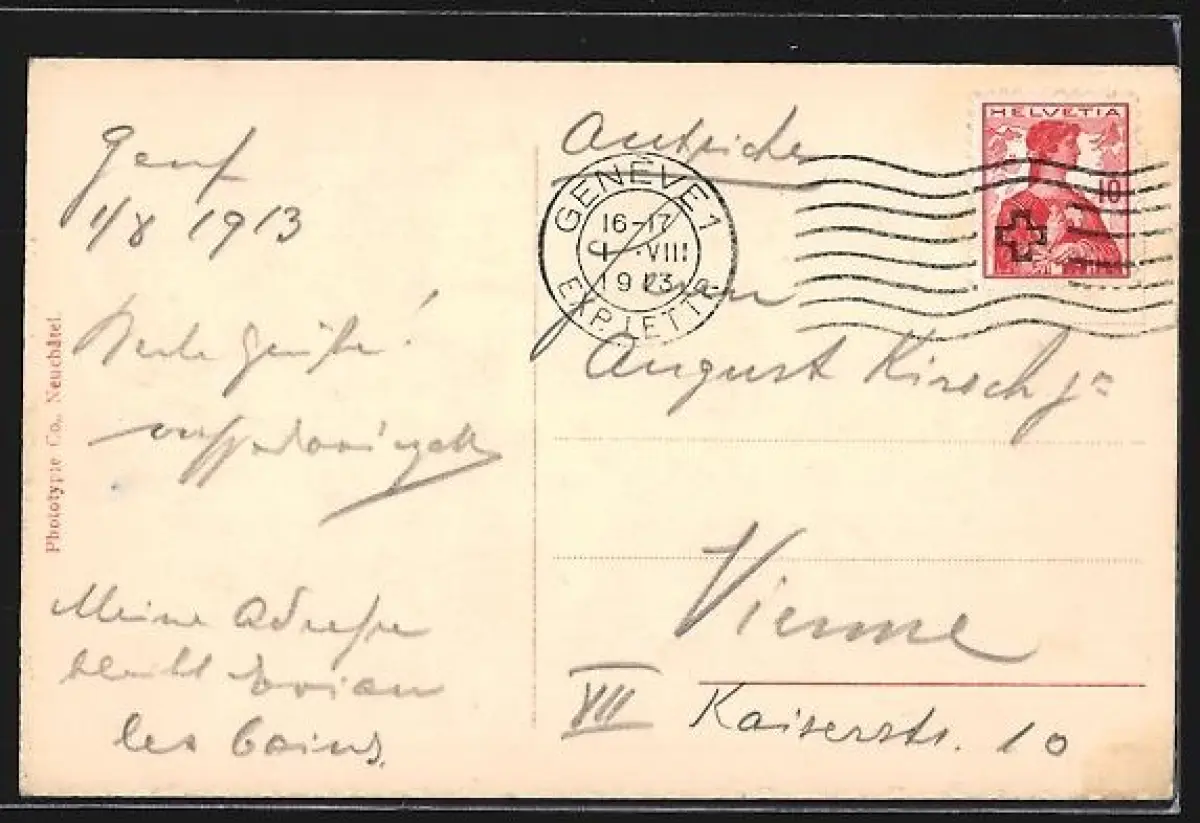 Genf
1/8 1913
Beste Grüße!
Meine Adresse
bleibt Evian
les bains.
Phototypie Co., Neuchâtel.
Autriche
GENÈVE 1
16-17
1.VIII
1913
EXP. LETTR.
HELVETIA
10
August Kirsch jr
Vienne
VII Kaiserstr. 10